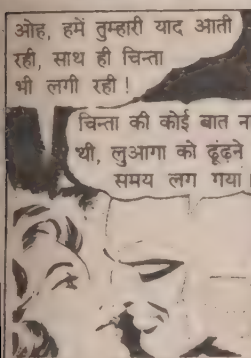 ओह, हमें तुम्हारी याद आती
रही, साथ ही चिन्ता
भी लगी रही !
चिन्ता की कोई बात न
थी, लुआगा को ढूंढ़ने
समय लग गया